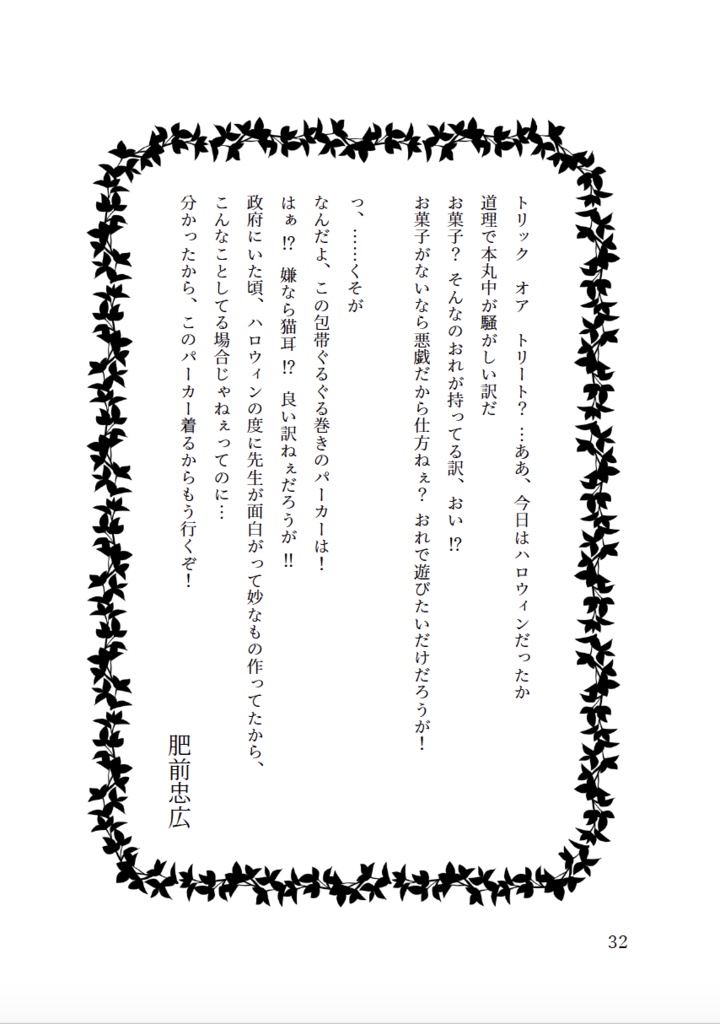 トリック　オア　トリート？ …ああ、今日はハロウィンだったか
道理で本丸中が騒がしい訳だ
お菓子？ そんなのおれが持ってる訳、おい⁉
お菓子がないなら悪戯だから仕方ねぇ？ おれで遊びたいだけだろうが！
っ、……くそが
なんだよ、この包帯ぐるぐる巻きのパーカーは！
はぁ⁉ 嫌なら猫耳⁉ 良い訳ねぇだろうが‼
政府にいた頃、ハロウィンの度に先生が面白がって妙なもの作ってたから、
こんなことしてる場合じゃねぇってのに…
分かったから、このパーカー着るからもう行くぞ！
肥前忠広
32